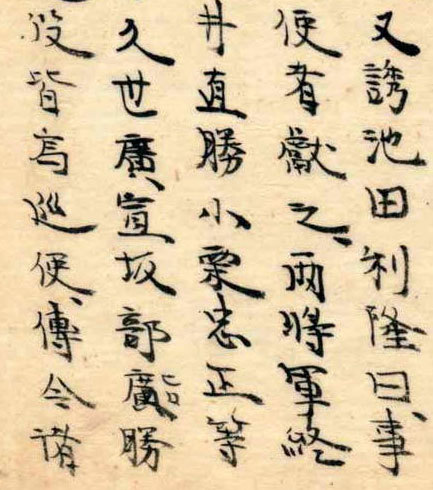 又誘池田利隆曰事
使者獻之、兩將軍終
井直勝小栗忠正等
久世廣宣坂部廣勝
役皆為巡使傳令諸